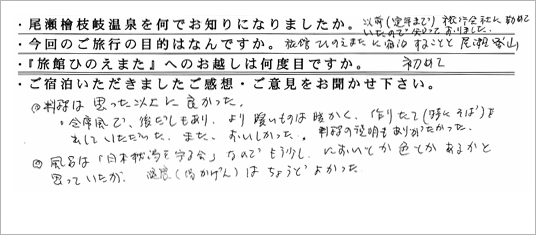 ・尾瀬檜枝岐温泉を何でお知りになりましたか。以前(定年まで)旅行会社に勤めて
いたので知っておりました。
・今回のご旅行の目的はなんですか。旅館ひのえまたに宿泊することと尾瀬登山
・『旅館ひのえまた』へのお越しは何度目ですか。初めて
・ご宿泊いただきましたご感想・ご意見をお聞かせ下さい。
料理は思った以上に良かった。
・会席風で、後だしもあり、より暖いものは暖かく、作りたて(特にそば)を
出していただいた、また、おいしかった。料理の説明もありがたかった。
風呂は「日本秘湯を守る会」なのでもう少し、においとか色とかあるかと
思っていたが、温度(湯かげん)はちょうどよかった